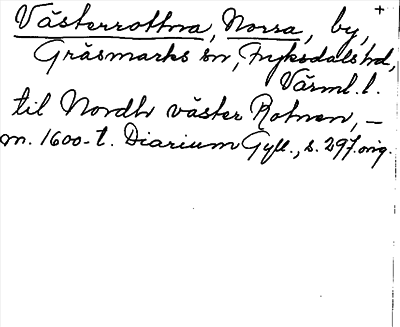 +
Västerrottna, Norra, by,
Gräsmarks sn, Fryksdals hd,
Värml. l.
til Nordh väster Rotnen, –
m. 1600-t. Diarium Gyll., s. 297. orig.